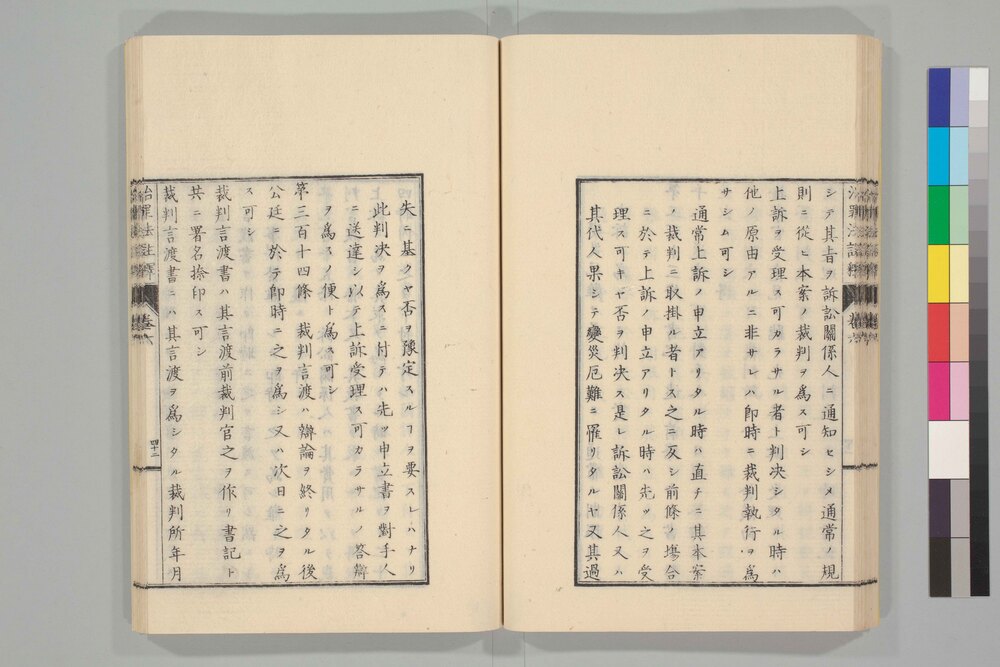 シテ其旨ヲ訴訟關係人ニ通知セシメ通常ノ規
則ニ從ヒ本案ノ裁判ヲ爲ス可シ
上訴ヲ受理ス可カラサル者ト判决シタル時ハ
他ノ原由アルニ非サレハ即時ニ裁判執行ヲ爲
サシム可シ
通常上訴ノ申立アリタル時ハ直チニ其本案
ノ裁判ニ取掛ル者トス之ニ反シ前條ノ塲合
ニ於テ上訴ノ申立アリタル時ハ先ツ之ヲ受
理ス可キヤ否ヲ判决ス是レ訴訟關係人又ハ
其代人果シテ變災厄難ニ罹リタルヤ又其過
失ニ基クヤ否ヲ豫定スルヿヲ要スレハナリ
此判决ヲ爲スニ付テハ先ツ申立書ヲ對手人
ニ送達シ以テ上訴受理ス可カラサルノ答辯
ヲ爲スノ便ト爲ス可シ
第三百十四條 裁判言渡ハ辯論ヲ終リタル後
公廷ニ於テ即時ニ之ヲ爲シ又ハ次日ニ之ヲ爲
ス可シ
裁判言渡書ハ其言渡前裁判官之ヲ作リ書記ト
共ニ署名捺印ス可シ
裁判言渡書ニハ其言渡ヲ爲シタル裁判所年月
治罪法註釋 卷六
四十二